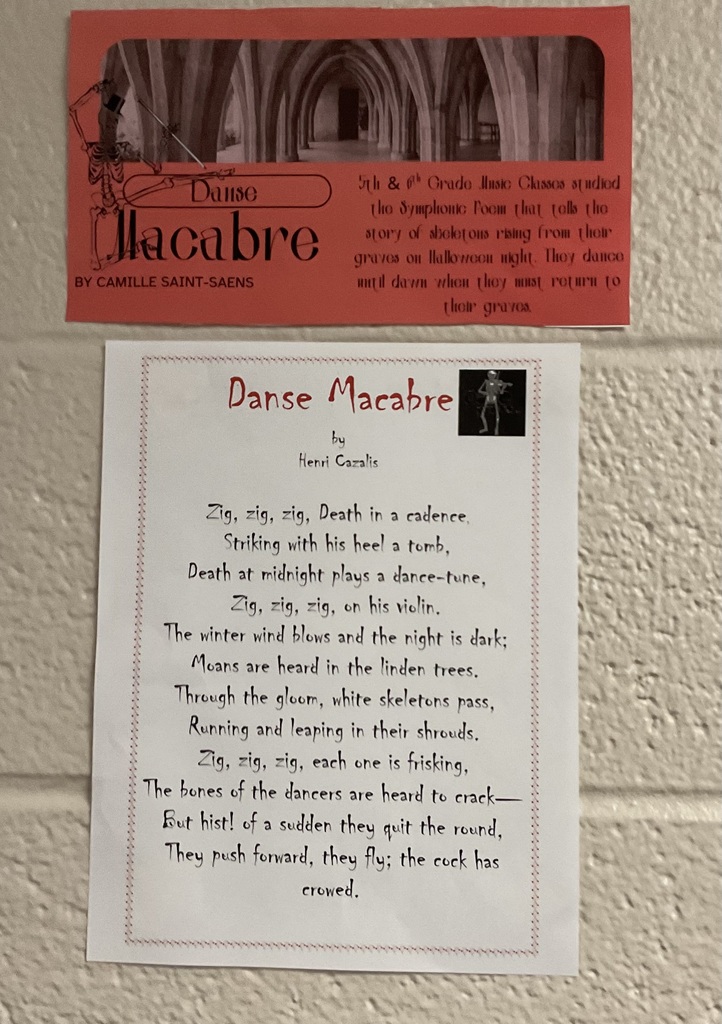 Danse
Macabre
BY CAMILLE SAINT-SAENS
5th & 6th Grade Music Classes studied
the Symphonic Poem that tells the
story of skeletons rising from their
graves on Halloween night. They dance
until dawn when they must return to
their graves.
Danse Macabre
by
Henri Cazalis
Zig, zig, zig, Death in a cadence,
Striking with his heel a tomb,
Death at midnight plays a dance-tune,
Zig, zig, zig, on his violin.
The winter wind blows and the night is dark;
Moans are heard in the linden trees.
Through the gloom, white skeletons pass,
Running and leaping in their shrouds.
Zig, zig, zig, each one is frisking,
The bones of the dancers are heard to crack—
But hist! of a sudden they quit the round,
They push forward, they fly; the cock has
crowed.